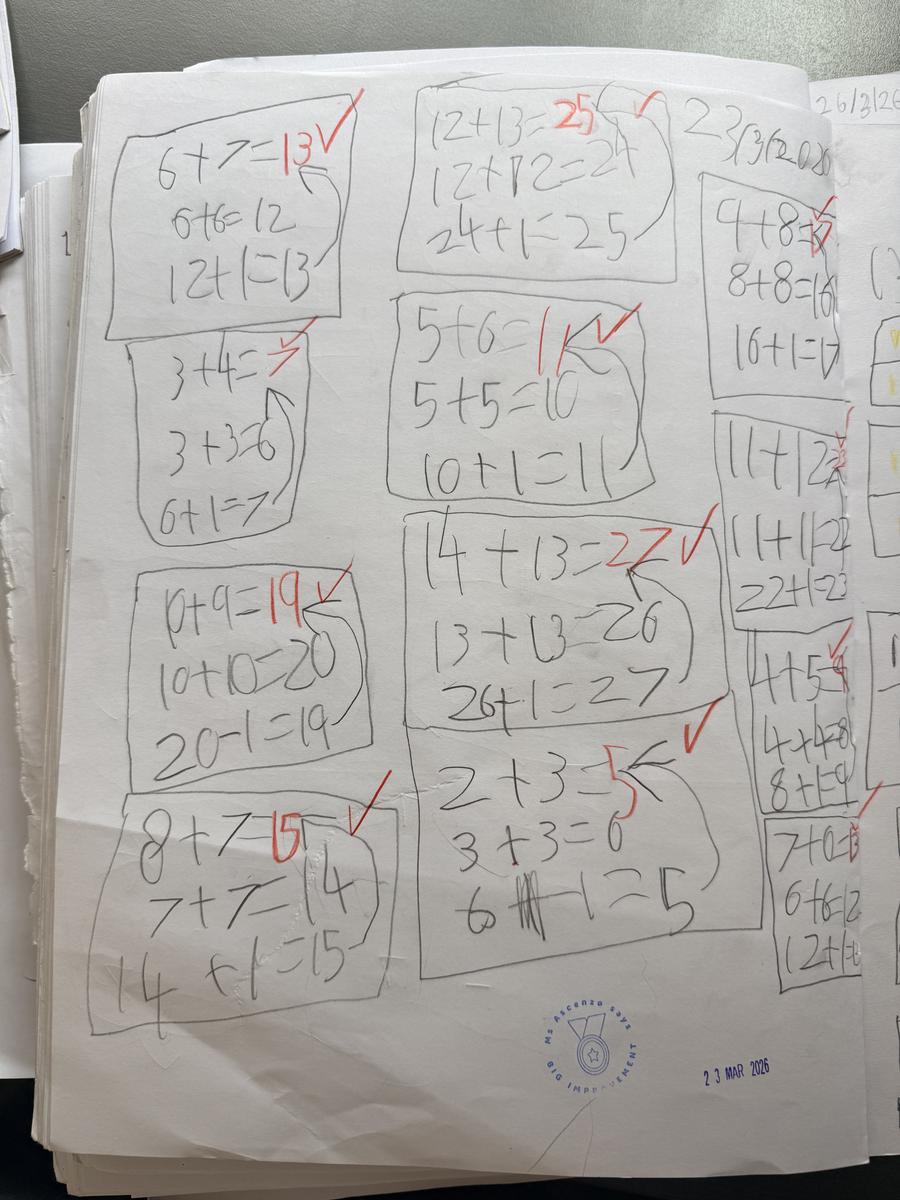 6+7=13
6+6=12
12+1=13
3+4=7
3+3=6
6+1=7
10+9=19
10+10=20
20-1=19
8+7=15
7+7=14
14+1=15
12+13=25
12+12=24
24+1=25
5+6=11
5+5=10
10+1=11
14+13=27
13+13=26
26+1=27
2+3=5
3+3=6
6-1=5
23/3/2026
9+8=17
8+8=16
16+1=17
11+12=23
11+11=22
22+1=23
4+5=9
4+4=8
8+1=9
7+6=13
6+6=12
12+1=
Ms Ascenzo says
BIG IMPROVEMENT
23 MAR 2026
26/3/26